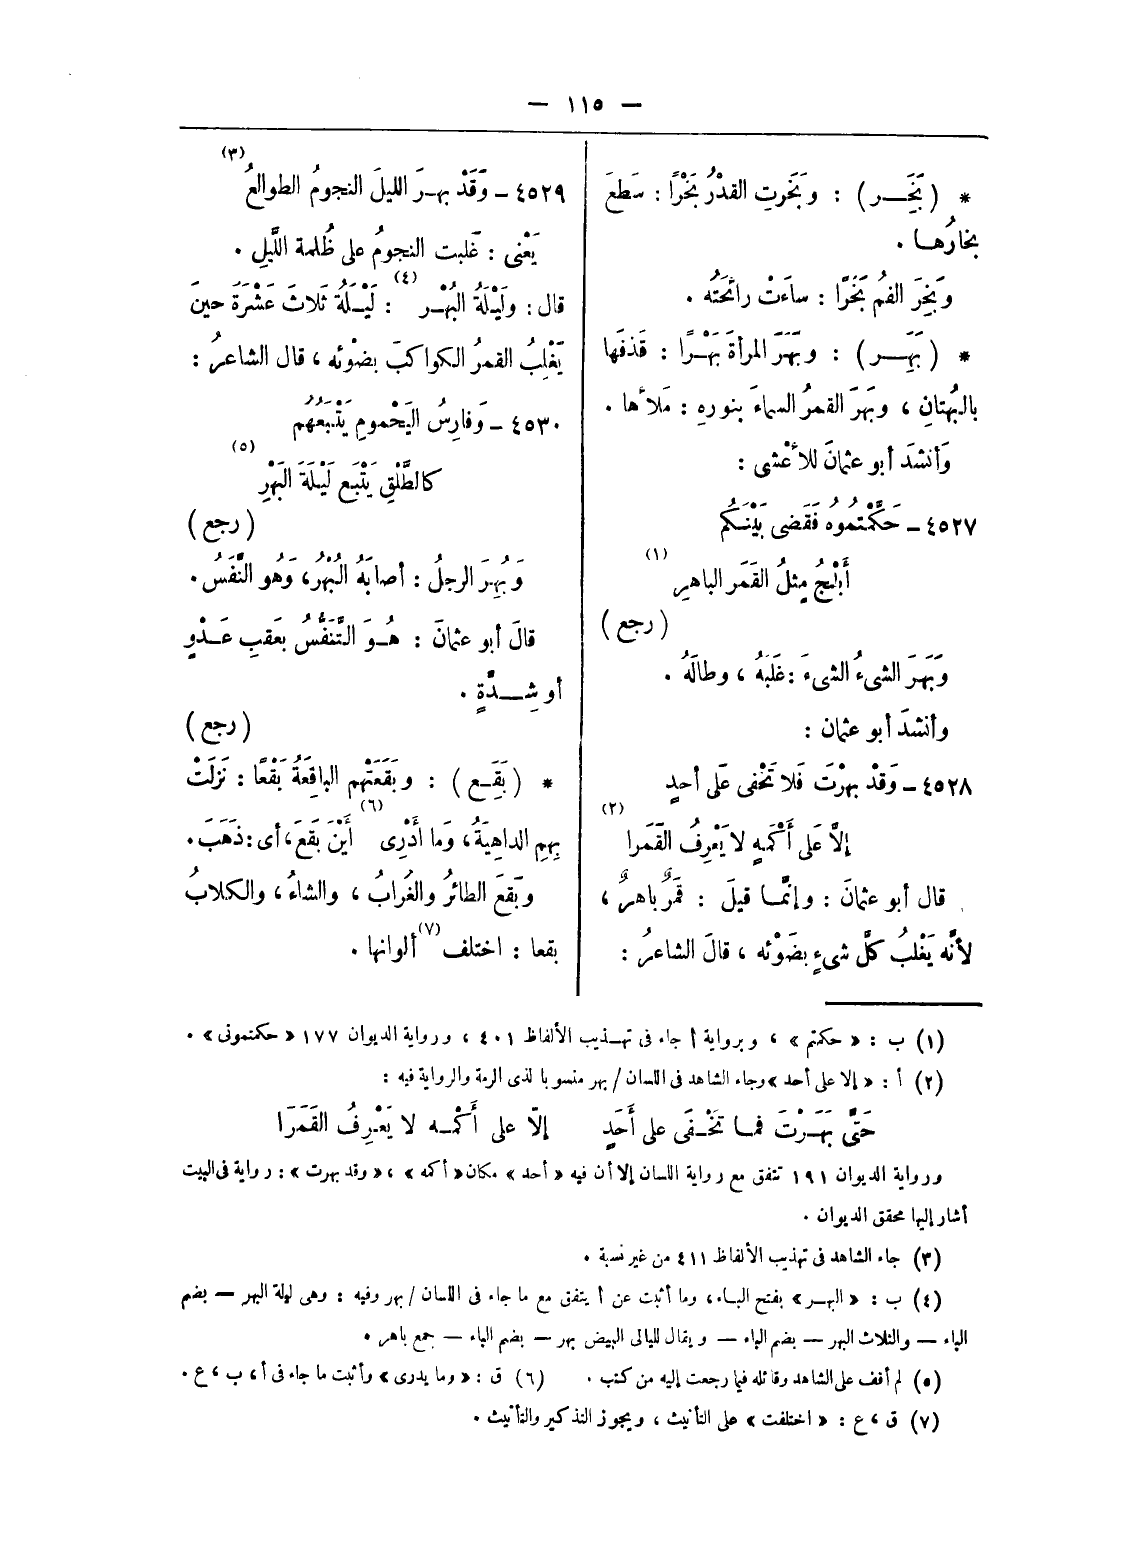 — ١١٥ —
* ( بَخَِـر ) : وبَخَرتِ القدْرُ بَخْرًا : سَطعَ
بخارُها .
وبَخِرَ الفمُ بَخَرًا : ساءَتْ رائحَتُه .
* ( بَهَِـر ) : وبَهَرَ المرأةَ بَهْرًا : قذفَها
بالبُهتانِ ، وبهَرَ القمرُ السماءَ بنورِهِ : مَلأها .
وأنشدَ أبو عثمانَ للأعْشى :
٤٥٢٧ – حَكَّمْتُمُوهُ فَقَضى بَيْنَكُم
أَبْلَجُ مِثلُ القَمَر الباهِرِ (١)
( رجع )
وبَهرَ الشىءُ الشىءَ : غَلبَهُ ، وطالَهُ .
وأنشدَ أبو عثمان :
٤٥٢٨ – وَقَدْ بهرْتَ فَلا تَخْفى عَلى أحدٍ
إلاَّ عَلى أَكْمَهٍ لا يَعْرِفُ القَمَرا (٢)
قال أبو عثمانَ : وإنَّمـا قيلَ : قَمَرٌ باهرٌ ،
لأنَّه يَغْلبُ كلَّ شىءٍ بضَوْئه ، قالَ الشاعرُ :
٤٥٢٩ – وَقَدْ بهـرَ الليلَ النجومُ الطوالعُ (٣)
يَعْنى : غَلبت النجومُ على ظُلمة اللَّيلِ .
قال : ولَيْلَةُ البُهْـر (٤) : لَيْـلَةُ ثلاثَ عَشْرَةَ حينَ
يَغْلِبُ القمرُ الكواكبَ بضَوْئه ، قال الشاعرُ :
٤٥٣٠ – وَفارِسُ اليَحْمومِ يَتْبعُهُم
كالطَّلْقِ يَتْبَع لَيْلَةَ البَهْرِ (٥)
( رجع )
وبُهِرَ الرجلُ : أصابَهُ البُهْرُ ، وَهُو النَّفَسُ .
قالَ أبو عثمانَ : هُـوَ التَّنَفُّسُ بعَقبِ عَـدْوٍ
أو شِـدَّةٍ .
( رجع )
* ( بَقَِـع ) : وبقَعَتْهم الباقِعَةُ بَقْعًا : نَزلَتْ
بِهِمِ الداهِيَةُ ، وَما أَدْرِى (٦) أَيْنَ بَقَعَ ، أى : ذَهَبَ .
وبَقعَ الطائرُ والغُرابُ ، والشاءُ ، والكلابُ
بقعا : اختلف (٧) ألوانها .
(١) ب : « حكمتم » ، وبرواية أ جاء فى تهـذيب الألفاظ ٤٠١ ، ورواية الديوان ١٧٧ « حكمتمونى » .
(٢) أ : « إلا على أحد » وجاء الشاهد فى اللسان / بهر منسوبا لذى الرمة والرواية فيه :
حَتَّى بَهَـرْتَ فمـا تَخْـفَى على أَحَدٍ إلاّ على أَكْمَـه لا يَعْـرِفُ القَمَرَا
ورواية الديوان ١٩١ تتفق مع رواية اللسان إلا أن فيه « أحد » مكان « أكمه » ، « وقد بهرت » : رواية فى البيت
أشار إليها محقق الديوان .
(٣) جاء الشاهد فى تهذيب الألفاظ ٤١١ من غير نسبة .
(٤) ب : « البهـر » بفتح البـاء ، وما أثبت عن أ يتفق مع ما جاء فى اللسان / بهر وفيه : وهى ليلة البهر — بضم
الباء — والثلاث البهر — بضم الباء — ويقال لليالى البيض بهر — بضم الباء — جمع باهر .
(٥) لم أقف على الشاهد وقائله فيما رجعت إليه من كتب . (٦) ق : « وما يدرى » وأثبت ما جاء فى أ ، ب ، ع .
(٧) ق ، ع : « اختلفت » على التأنيث ، ويجوز التذكير والتأنيث .